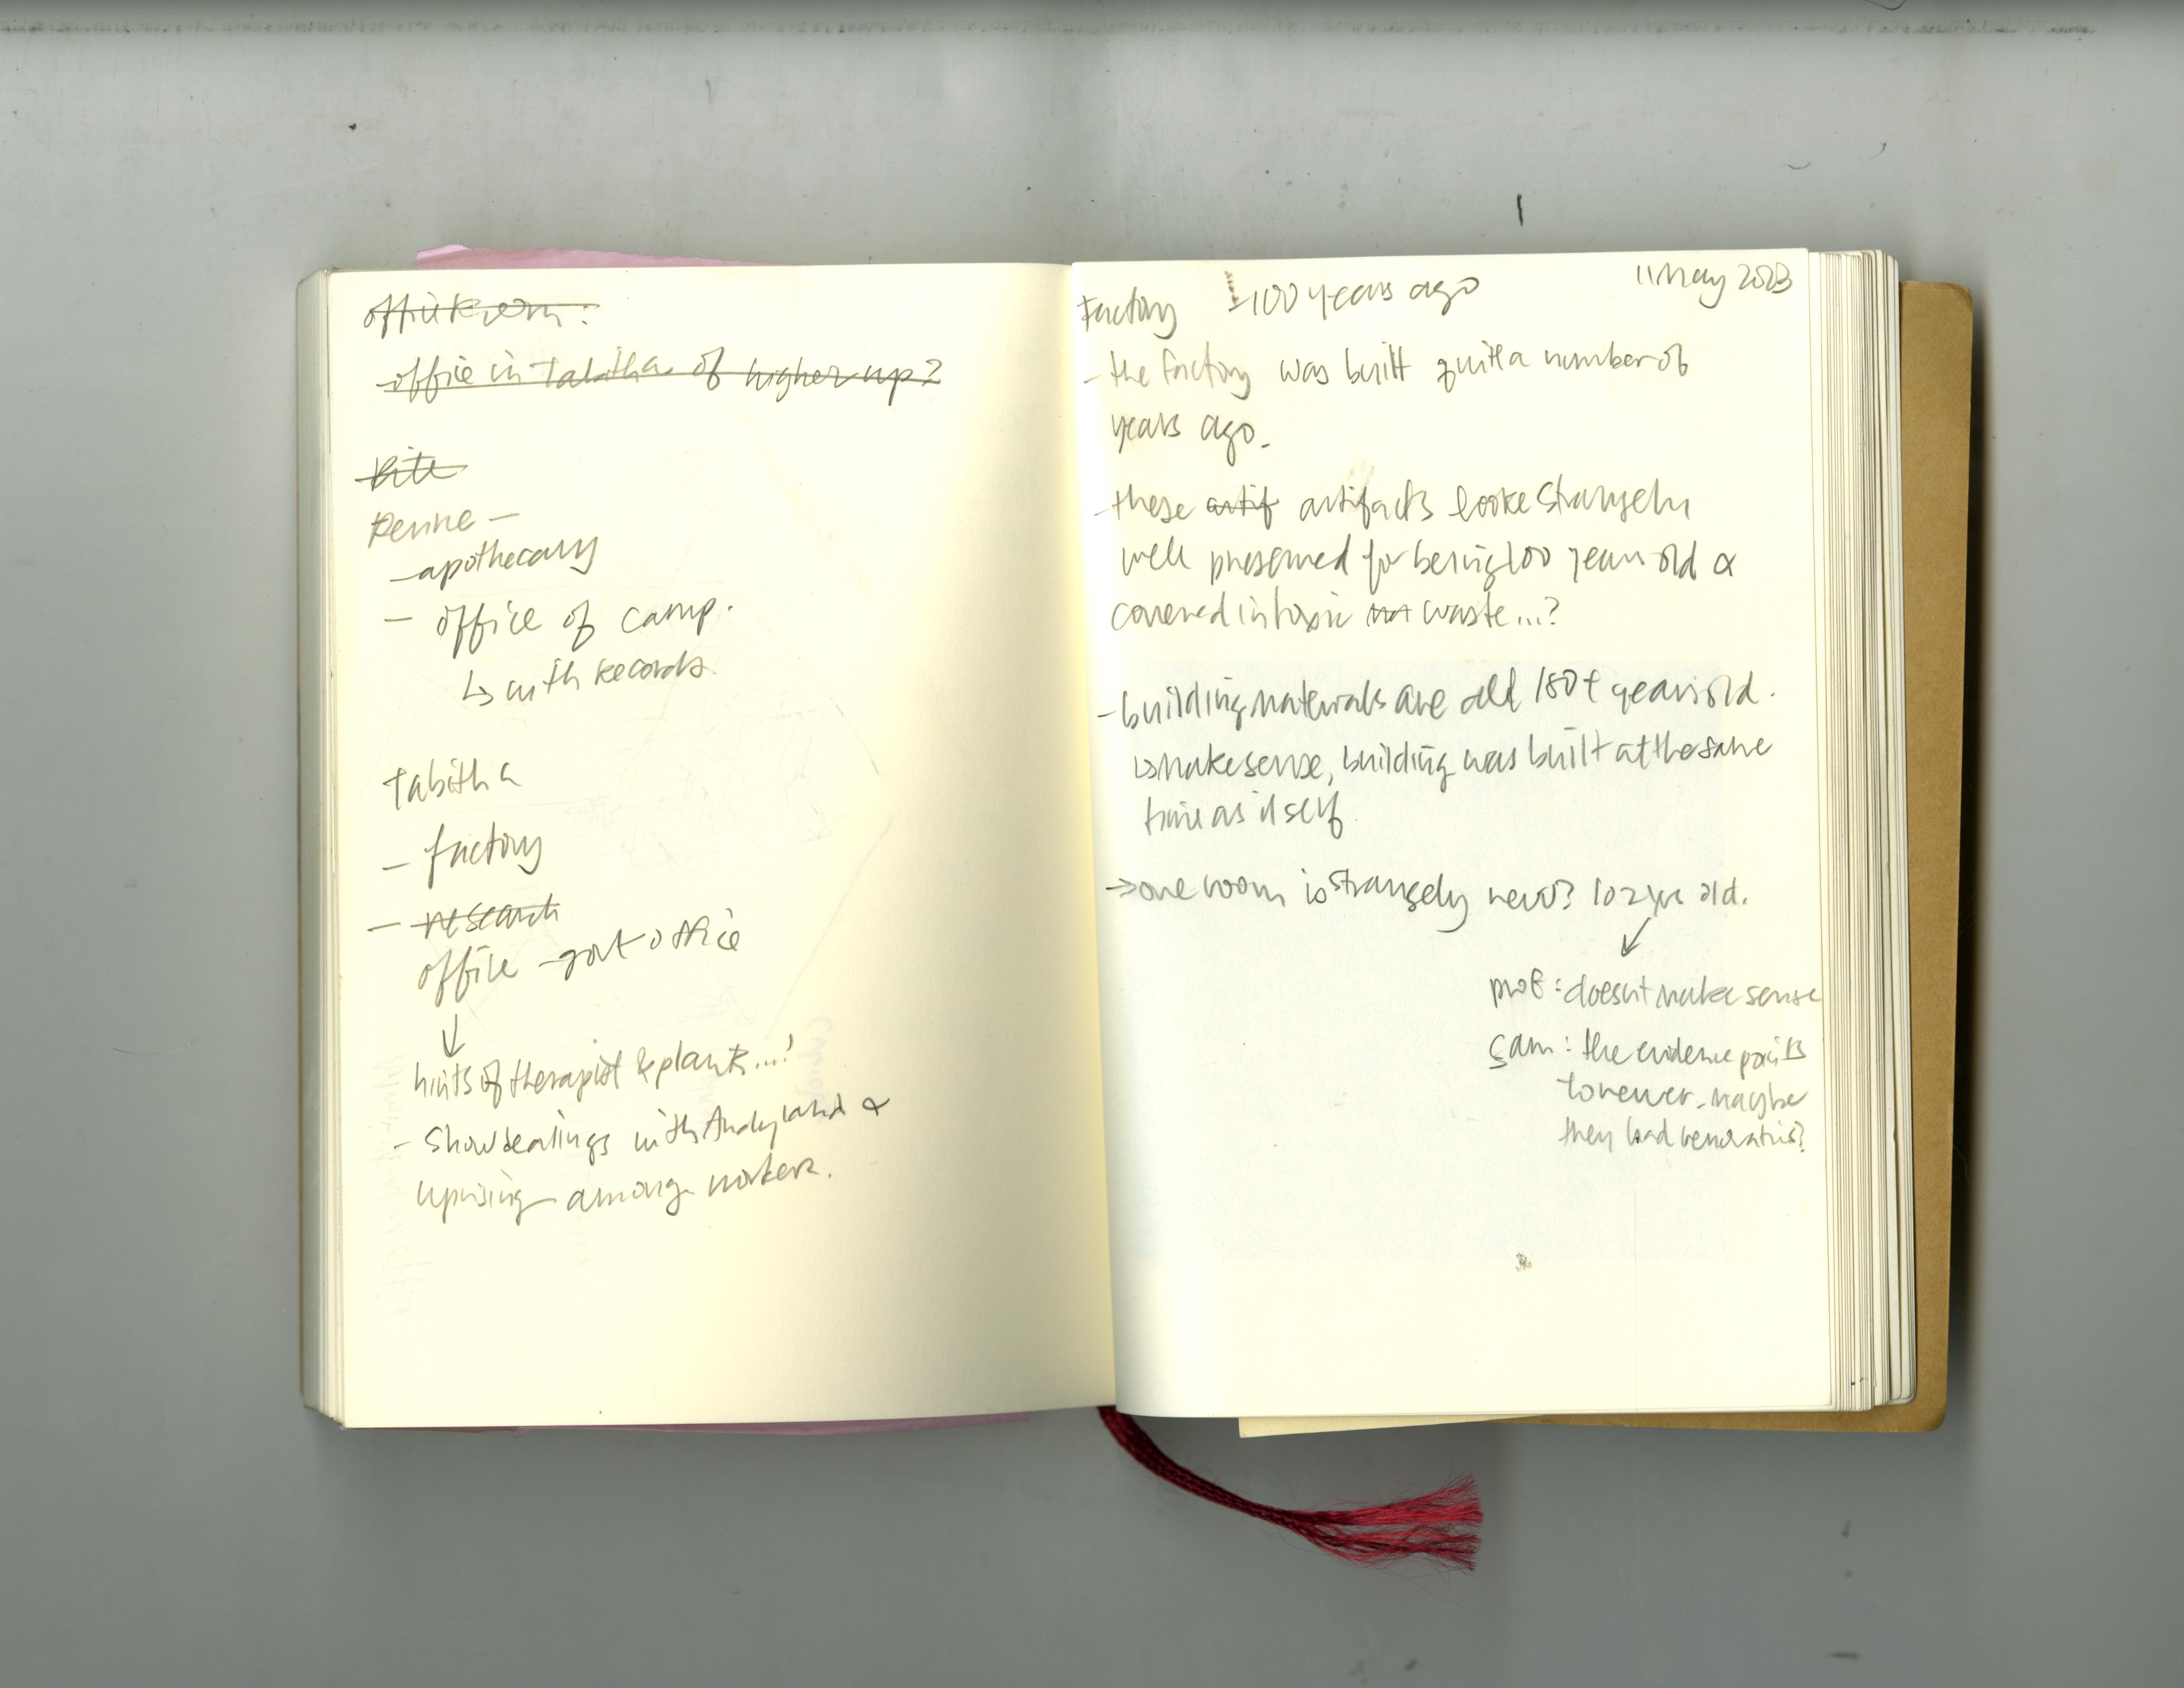 office in Tabitha of higher up?
- apothecary
- office of camp.
↳ with records
Tabitha
- factory
- research
office - govt office
↓
hints of therapist & plants...!
- show dealings with Andyland &
uprising among workers.
11 May 2023
Factory ~100 years ago
- the factory was built quite a number of
years ago.
- these artif artifacts looke strangely
well preserved for being 100 years old &
covered in toxic waste...?
- building materials are all 180+ years old.
↳ makesense, building was built at the same
time as itself
→ one room is strangely new? 102 yrs old.
↓
prof: doesn't make sense
Sam: the evidence points
to newer. maybe
they had renovations?